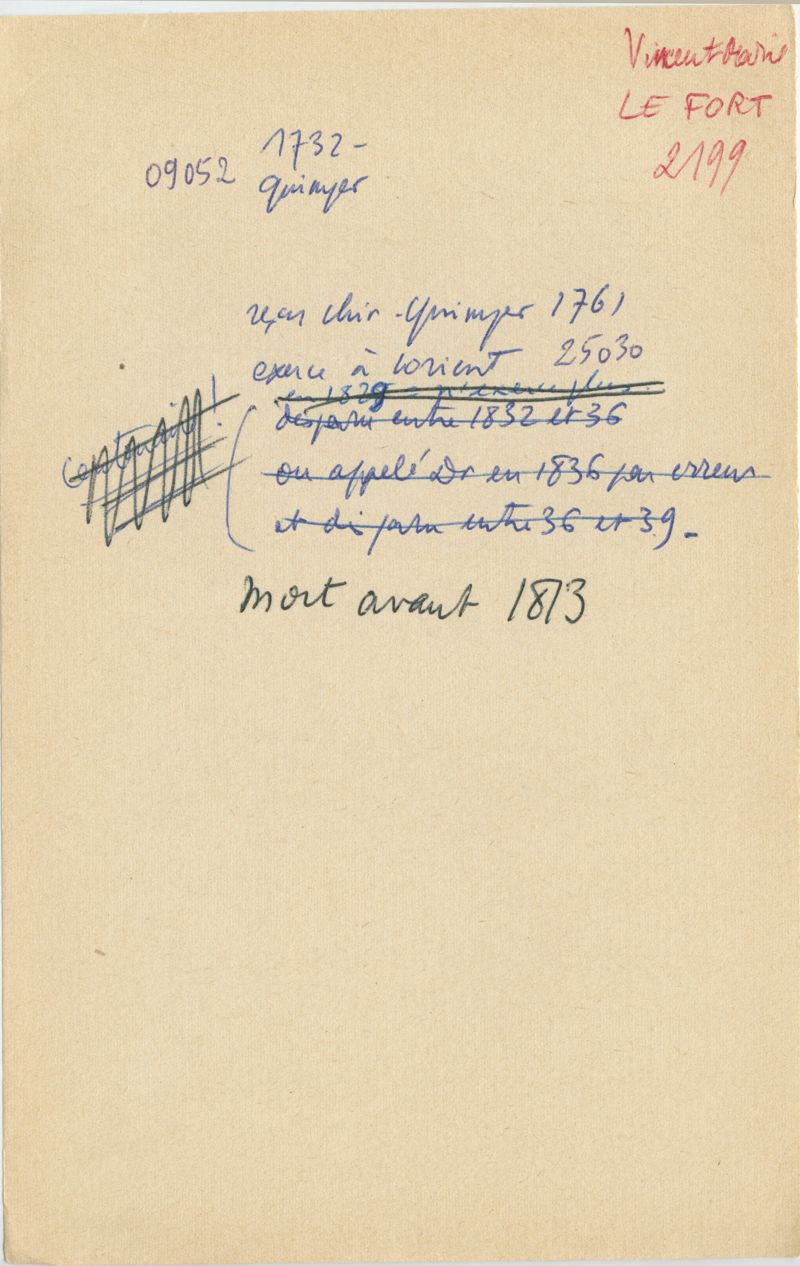 Vincent Marie
LE FORT
2199
1732-
09052 Quimper
reçu chir. Quimper 1761
exerce à Lorient 25030
en 1829 n'exerce plus
disparu entre 1832 et 36
ou appelé Dr en 1836 par erreur
et disparu entre 36 et 39.
Mort avant 1813